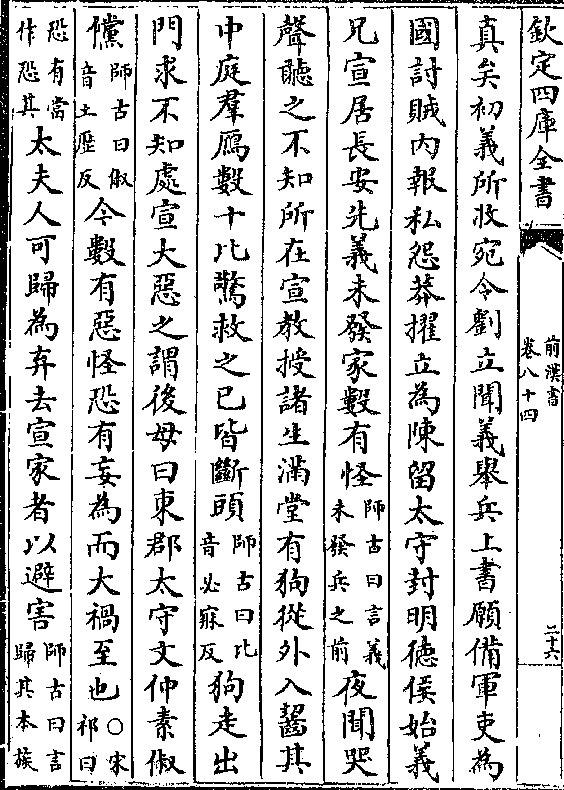 欽定四庫全書
前漢書
卷八十四
二十六
真矣初義所收宛令劉立聞義舉兵上書願備軍吏為
國討賊內報私怨莽擢立為陳留太守封明德侯始義
兄宣居長安先義未發家數有怪師古曰言義未發兵之前夜聞哭
聲聽之不知所在宣教授諸生滿堂有狗從外入齧其
中庭羣鴈數十比驚救之已皆斷頭師古曰比音必寐反狗走出
門求不知處宣大惡之謂後母曰東郡太守文仲素俶
儻師古曰俶音土歷反今數有惡怪恐有妄為而大禍至也○宋祁曰
恐有當作恐其太夫人可歸為弃去宣家者以避害師古曰言歸其本族